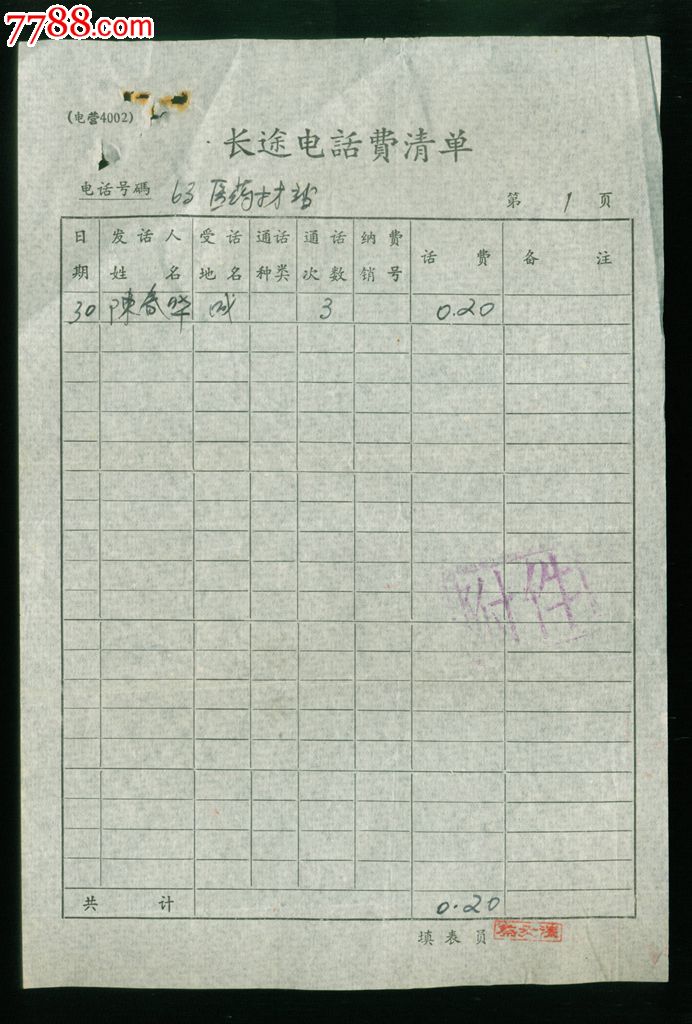 7788.com
(电营4002)
长途电話費清单
电话号碼 63 医药材站
第 1 页
日期 发话人姓名 受话地名 通话种类 通话次数 纳费销号 话费 备注
30 陳春 3 0.20
附件
共计 0.20
填表员